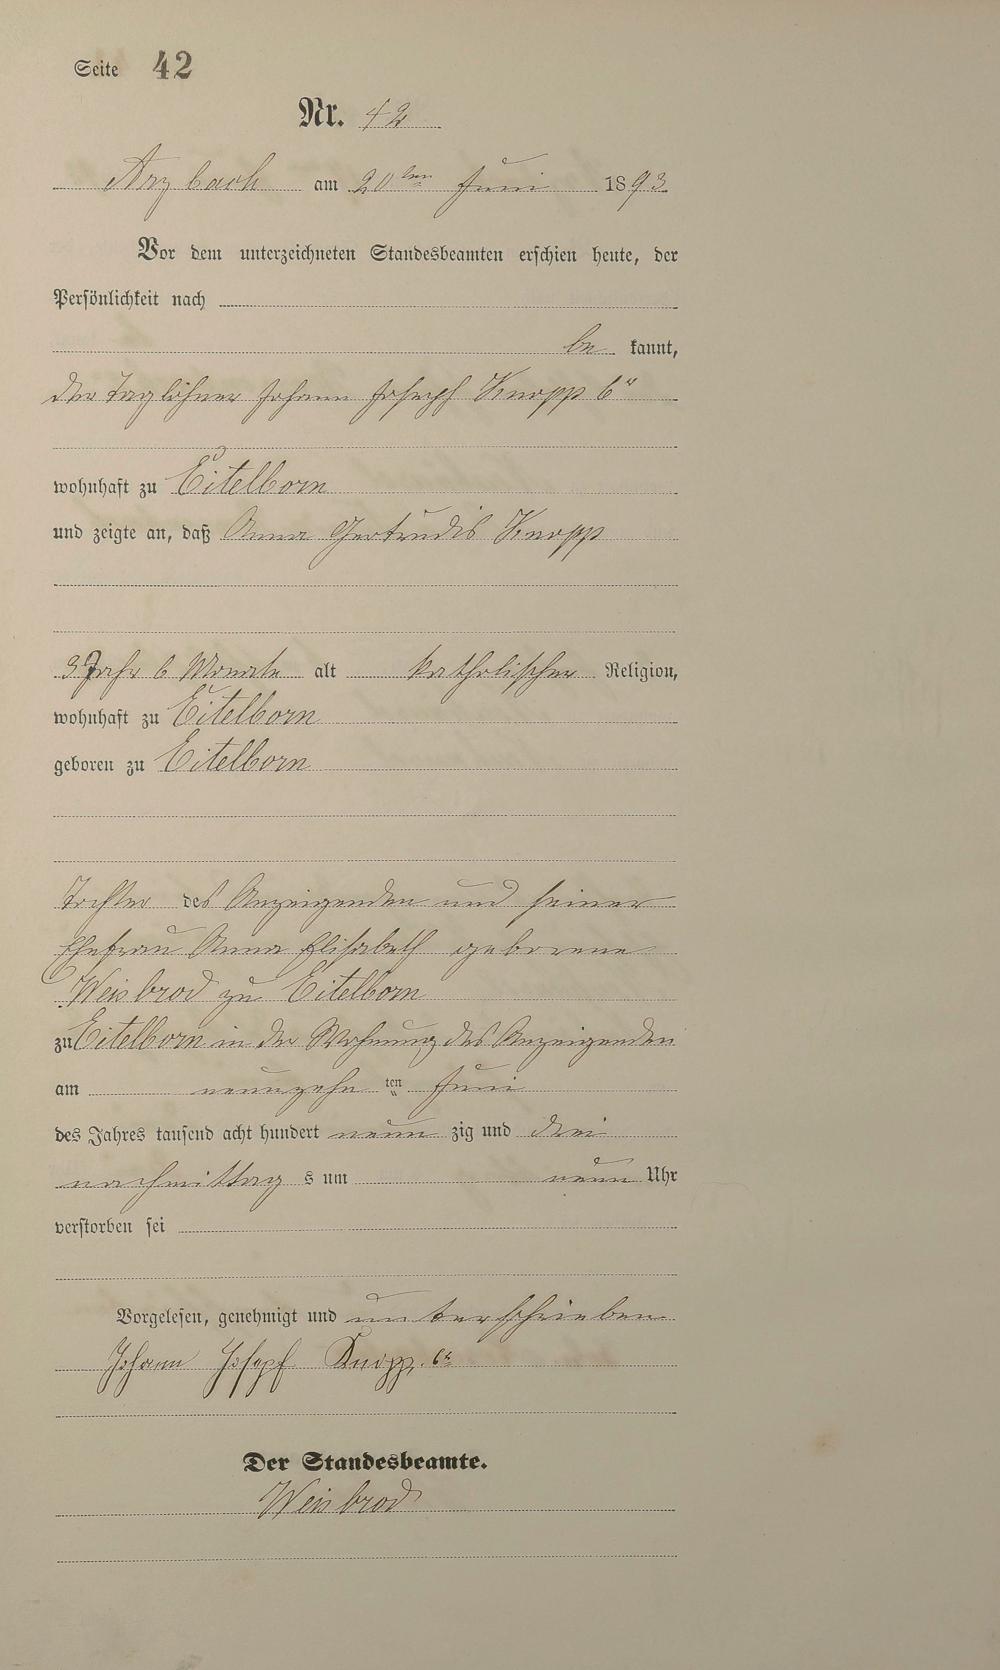 Seite 42
Nr. 42
Arzbach am 20ten Juni 1893
Vor dem unterzeichneten Standesbeamten erschien heute, der
Persönlichkeit nach
be kannt,
der Taglöhner Johann Joseph Knopp 6r
wohnhaft zu Eitelborn
und zeigte an, daß Anna Gertrudis Knopp
3 Jahr 6 Monate alt katholischer Religion,
wohnhaft zu Eitelborn
geboren zu Eitelborn
Tochter des Anzeigenden und seiner
Ehefrau Anna Elisabeth geborene
Weisbrod zu Eitelborn
zu Eitelborn in der Wohnung des Anzeigenden
am neunzehn ten Juni
des Jahres tausend acht hundert neun zig und drei
nachmittag s um neun Uhr
verstorben sei
Vorgelesen, genehmigt und unterschrieben
Johann Josepf Knopp. 6r
Der Standesbeamte.
Weisbrod